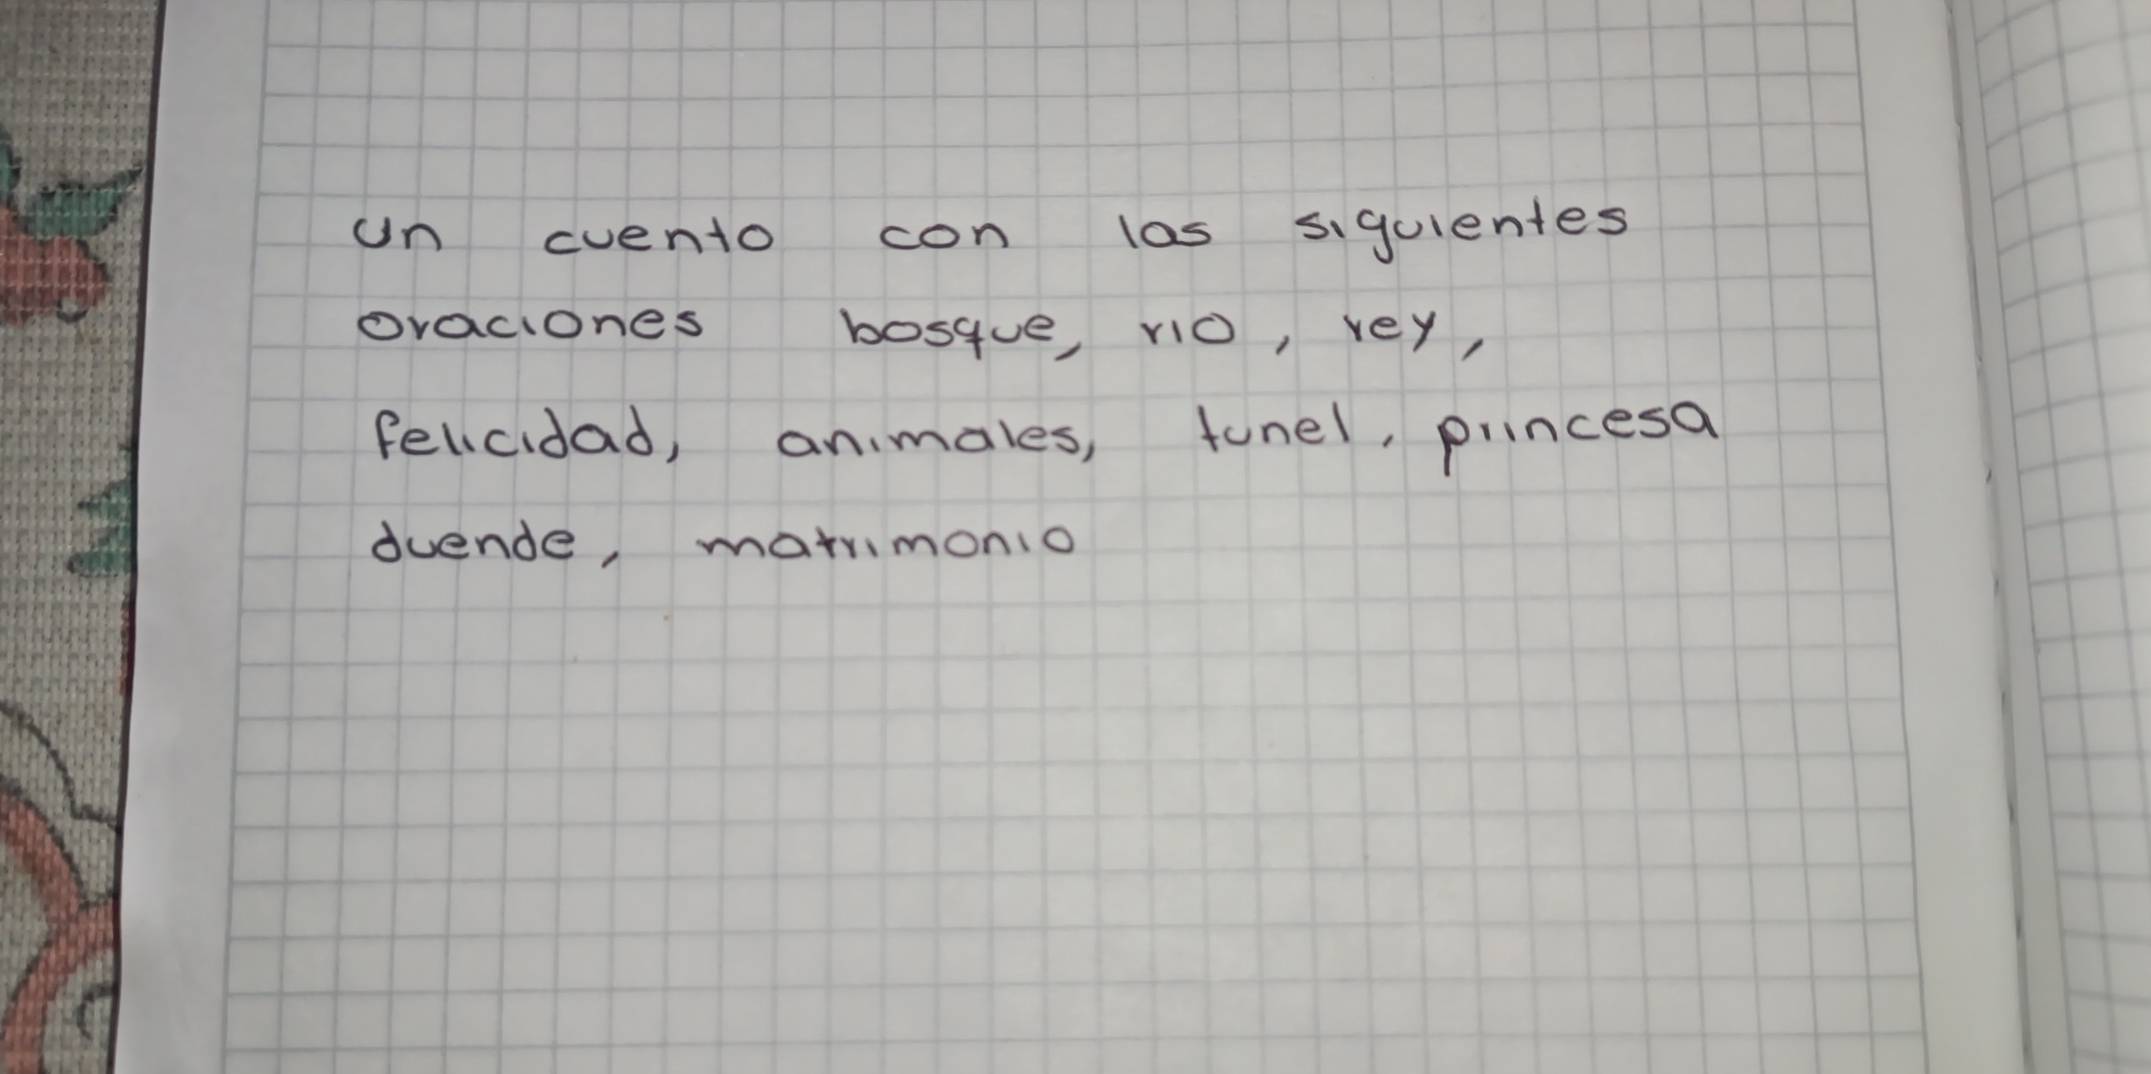 un cuento con las siguientes
oraciones bosque, rio, rey,
felicidad, animales, tunel, princesa
duende, matrimonio